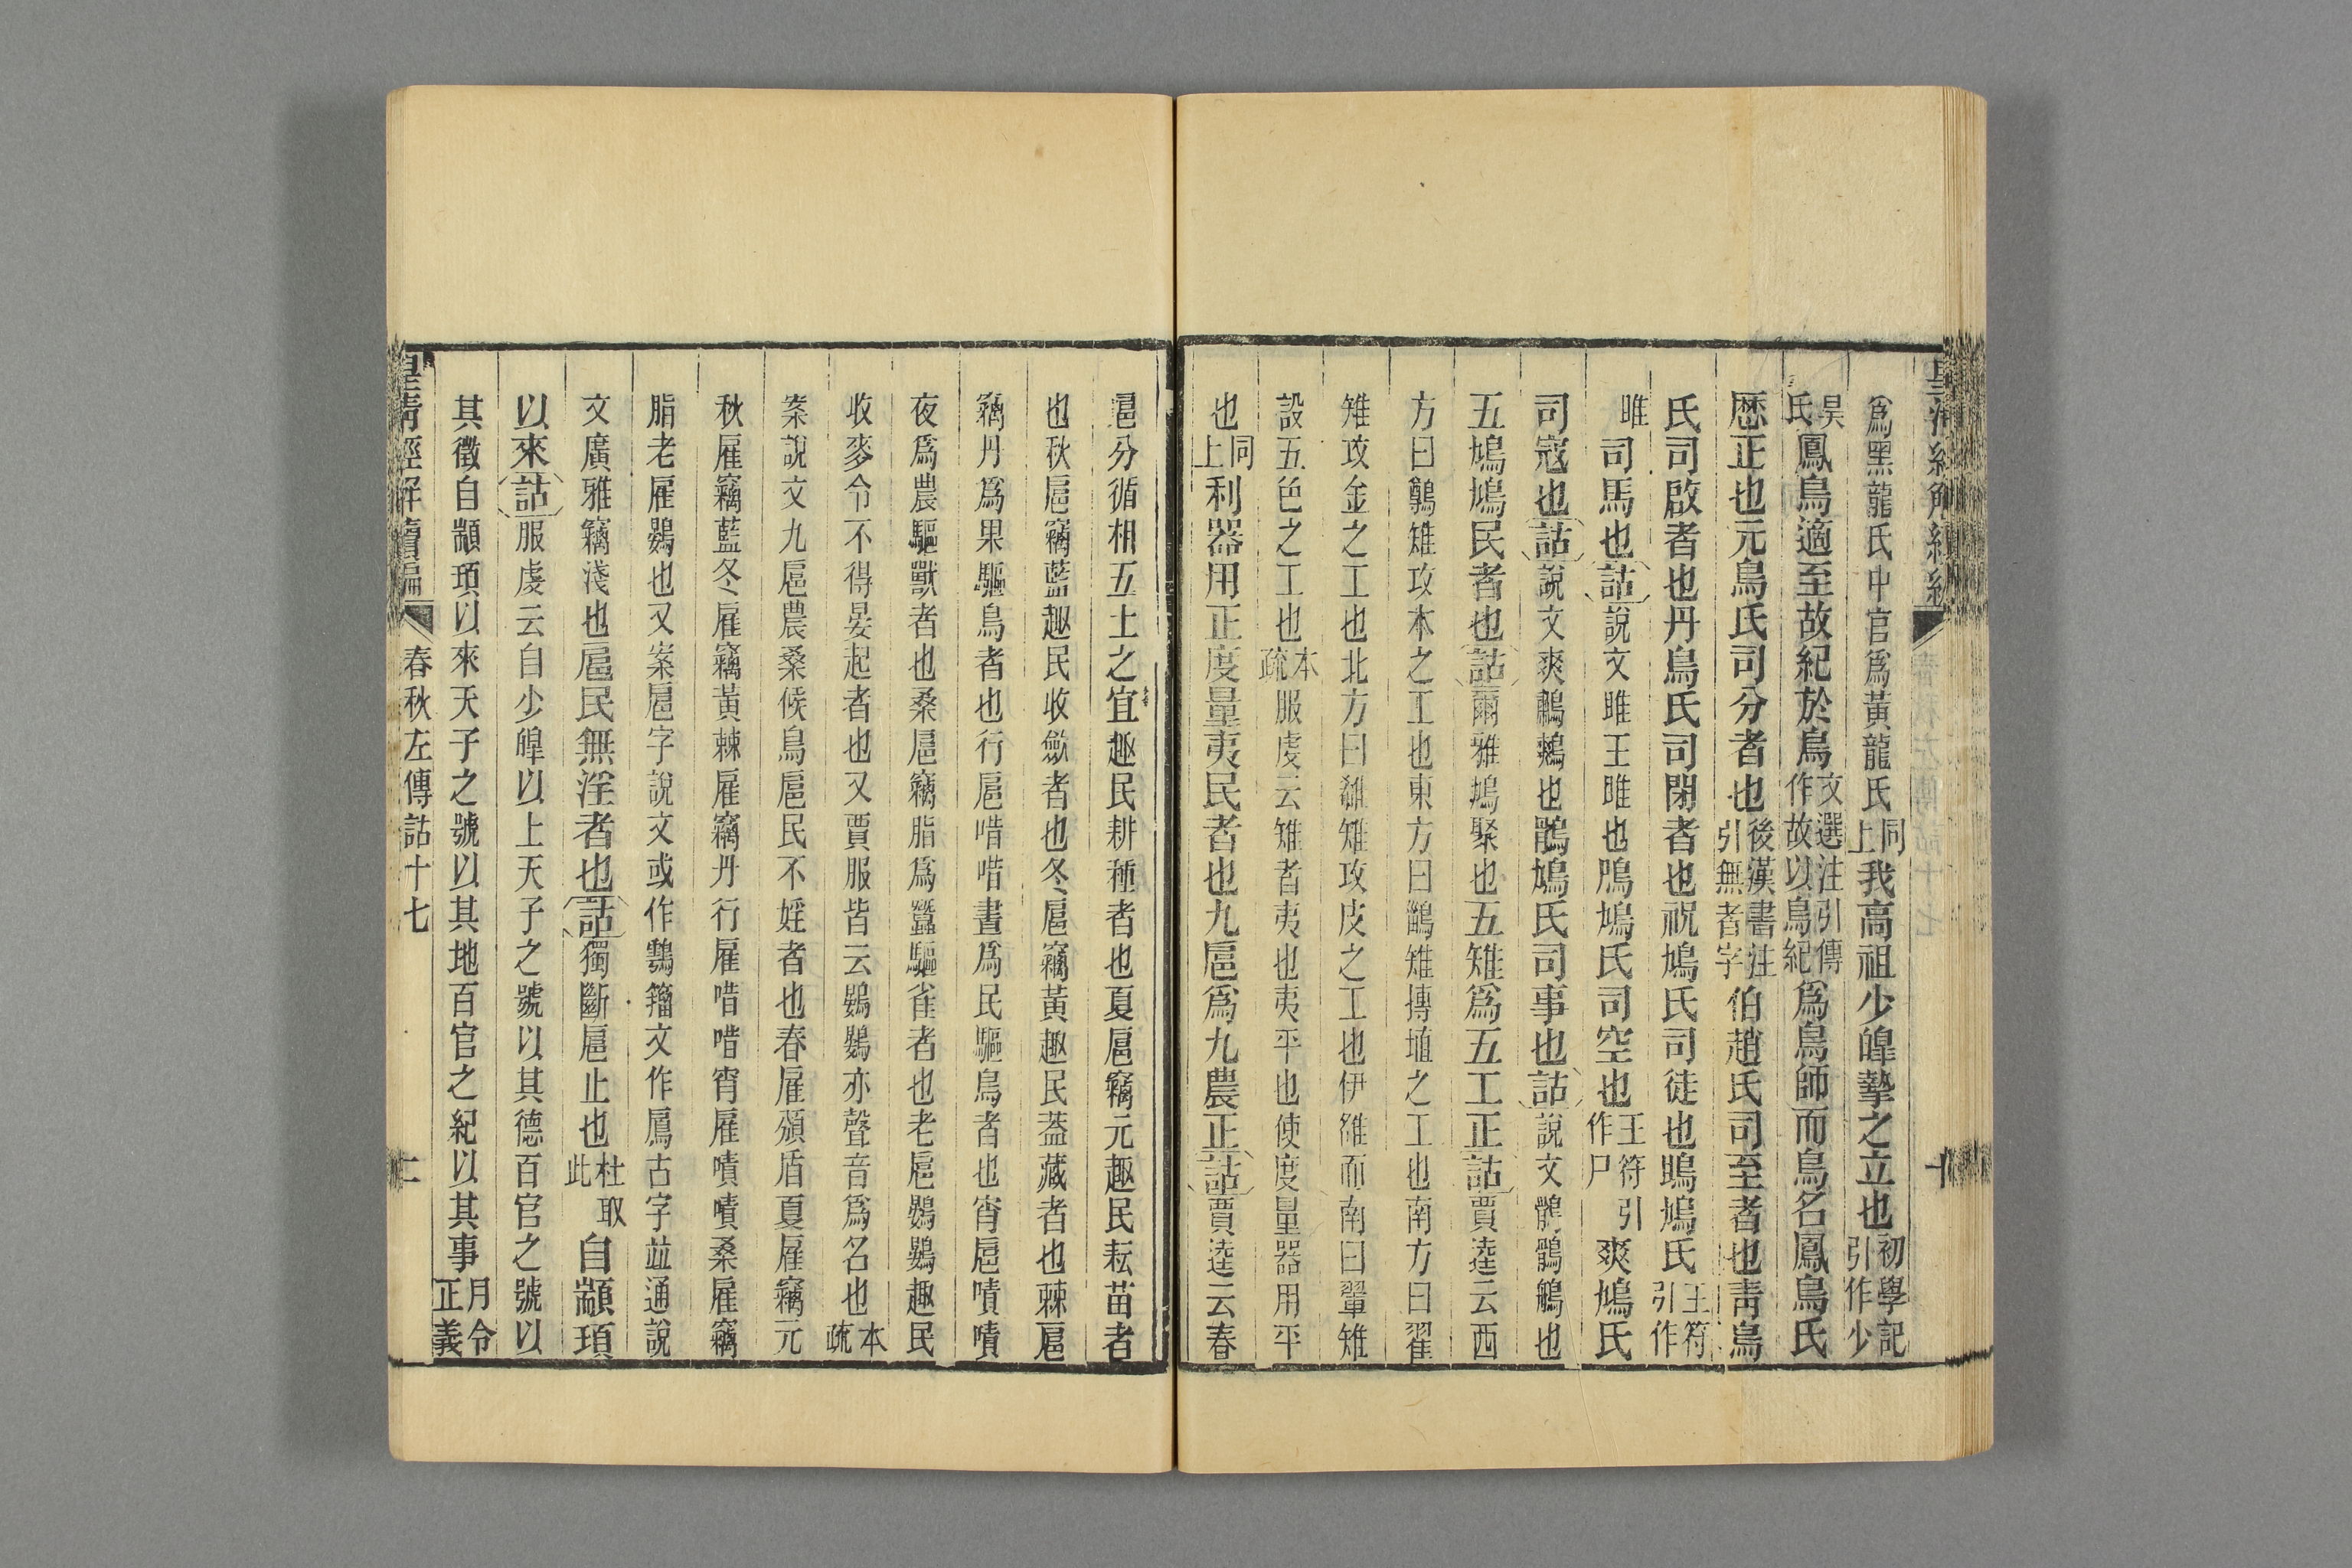 爲黑龍氏中官爲黃龍氏同上我高祖少皞摯之立也初學記引作少
昊氏鳳鳥適至故紀於鳥文選注引傳作故以鳥紀爲鳥師而鳥名鳳鳥氏
歷正也元鳥氏司分者也後漢書注引無者字伯趙氏司至者也靑鳥
氏司啟者也丹鳥氏司閉者也祝鳩氏司徒也鴡鳩氏王符引作
睢司馬也詁說文雎王雎也鳲鳩氏司空也王符引作尸爽鳩氏
司寇也詁說文爽鷫鷞也鶻鳩氏司事也詁說文鶻鶻鵃也
五鳩鳩民者也詁爾雅鳩聚也五雉爲五工正詁賈逵云西
方曰鷷雉攻木之工也東方曰鶅雉摶埴之工也南方曰翟
雉攻金之工也北方曰鵗雉攻皮之工也伊雒而南曰翬雉
設五色之工也本疏服虔云雉者夷也夷平也使度量器用平
也同上利器用正度量夷民者也九扈爲九農正詁賈逵云春
扈分循相五土之宜趣民耕種者也夏扈竊元趣民耘苗者
也秋扈竊藍趣民收斂者也冬扈竊黃趣民蓋藏者也棘扈
竊丹爲果驅鳥者也行扈唶唶晝爲民驅鳥者也宵扈嘖嘖
夜爲農驅獸者也桑扈竊脂爲蠶驅雀者也老扈鷃鷃趣民
收麥令不得晏起者也又賈服皆云鷃鷃亦聲音爲名也本疏
案說文九扈農桑候鳥扈民不婬者也春雇鳻盾夏雇竊元
秋雇竊藍冬雇竊黃棘雇竊丹行雇唶唶宵雇嘖嘖桑雇竊
脂老雇鷃也又案扈字說文或作鶚籒文作鳸古字竝通說
文廣雅竊淺也扈民無淫者也詁獨斷扈止也杜取此自顓頊
以來詁服虔云自少皞以上天子之號以其德百官之號以
其徵自顓頊以來天子之號以其地百官之紀以其事月令正義
皇淸經解續編
春秋左傳詁十七